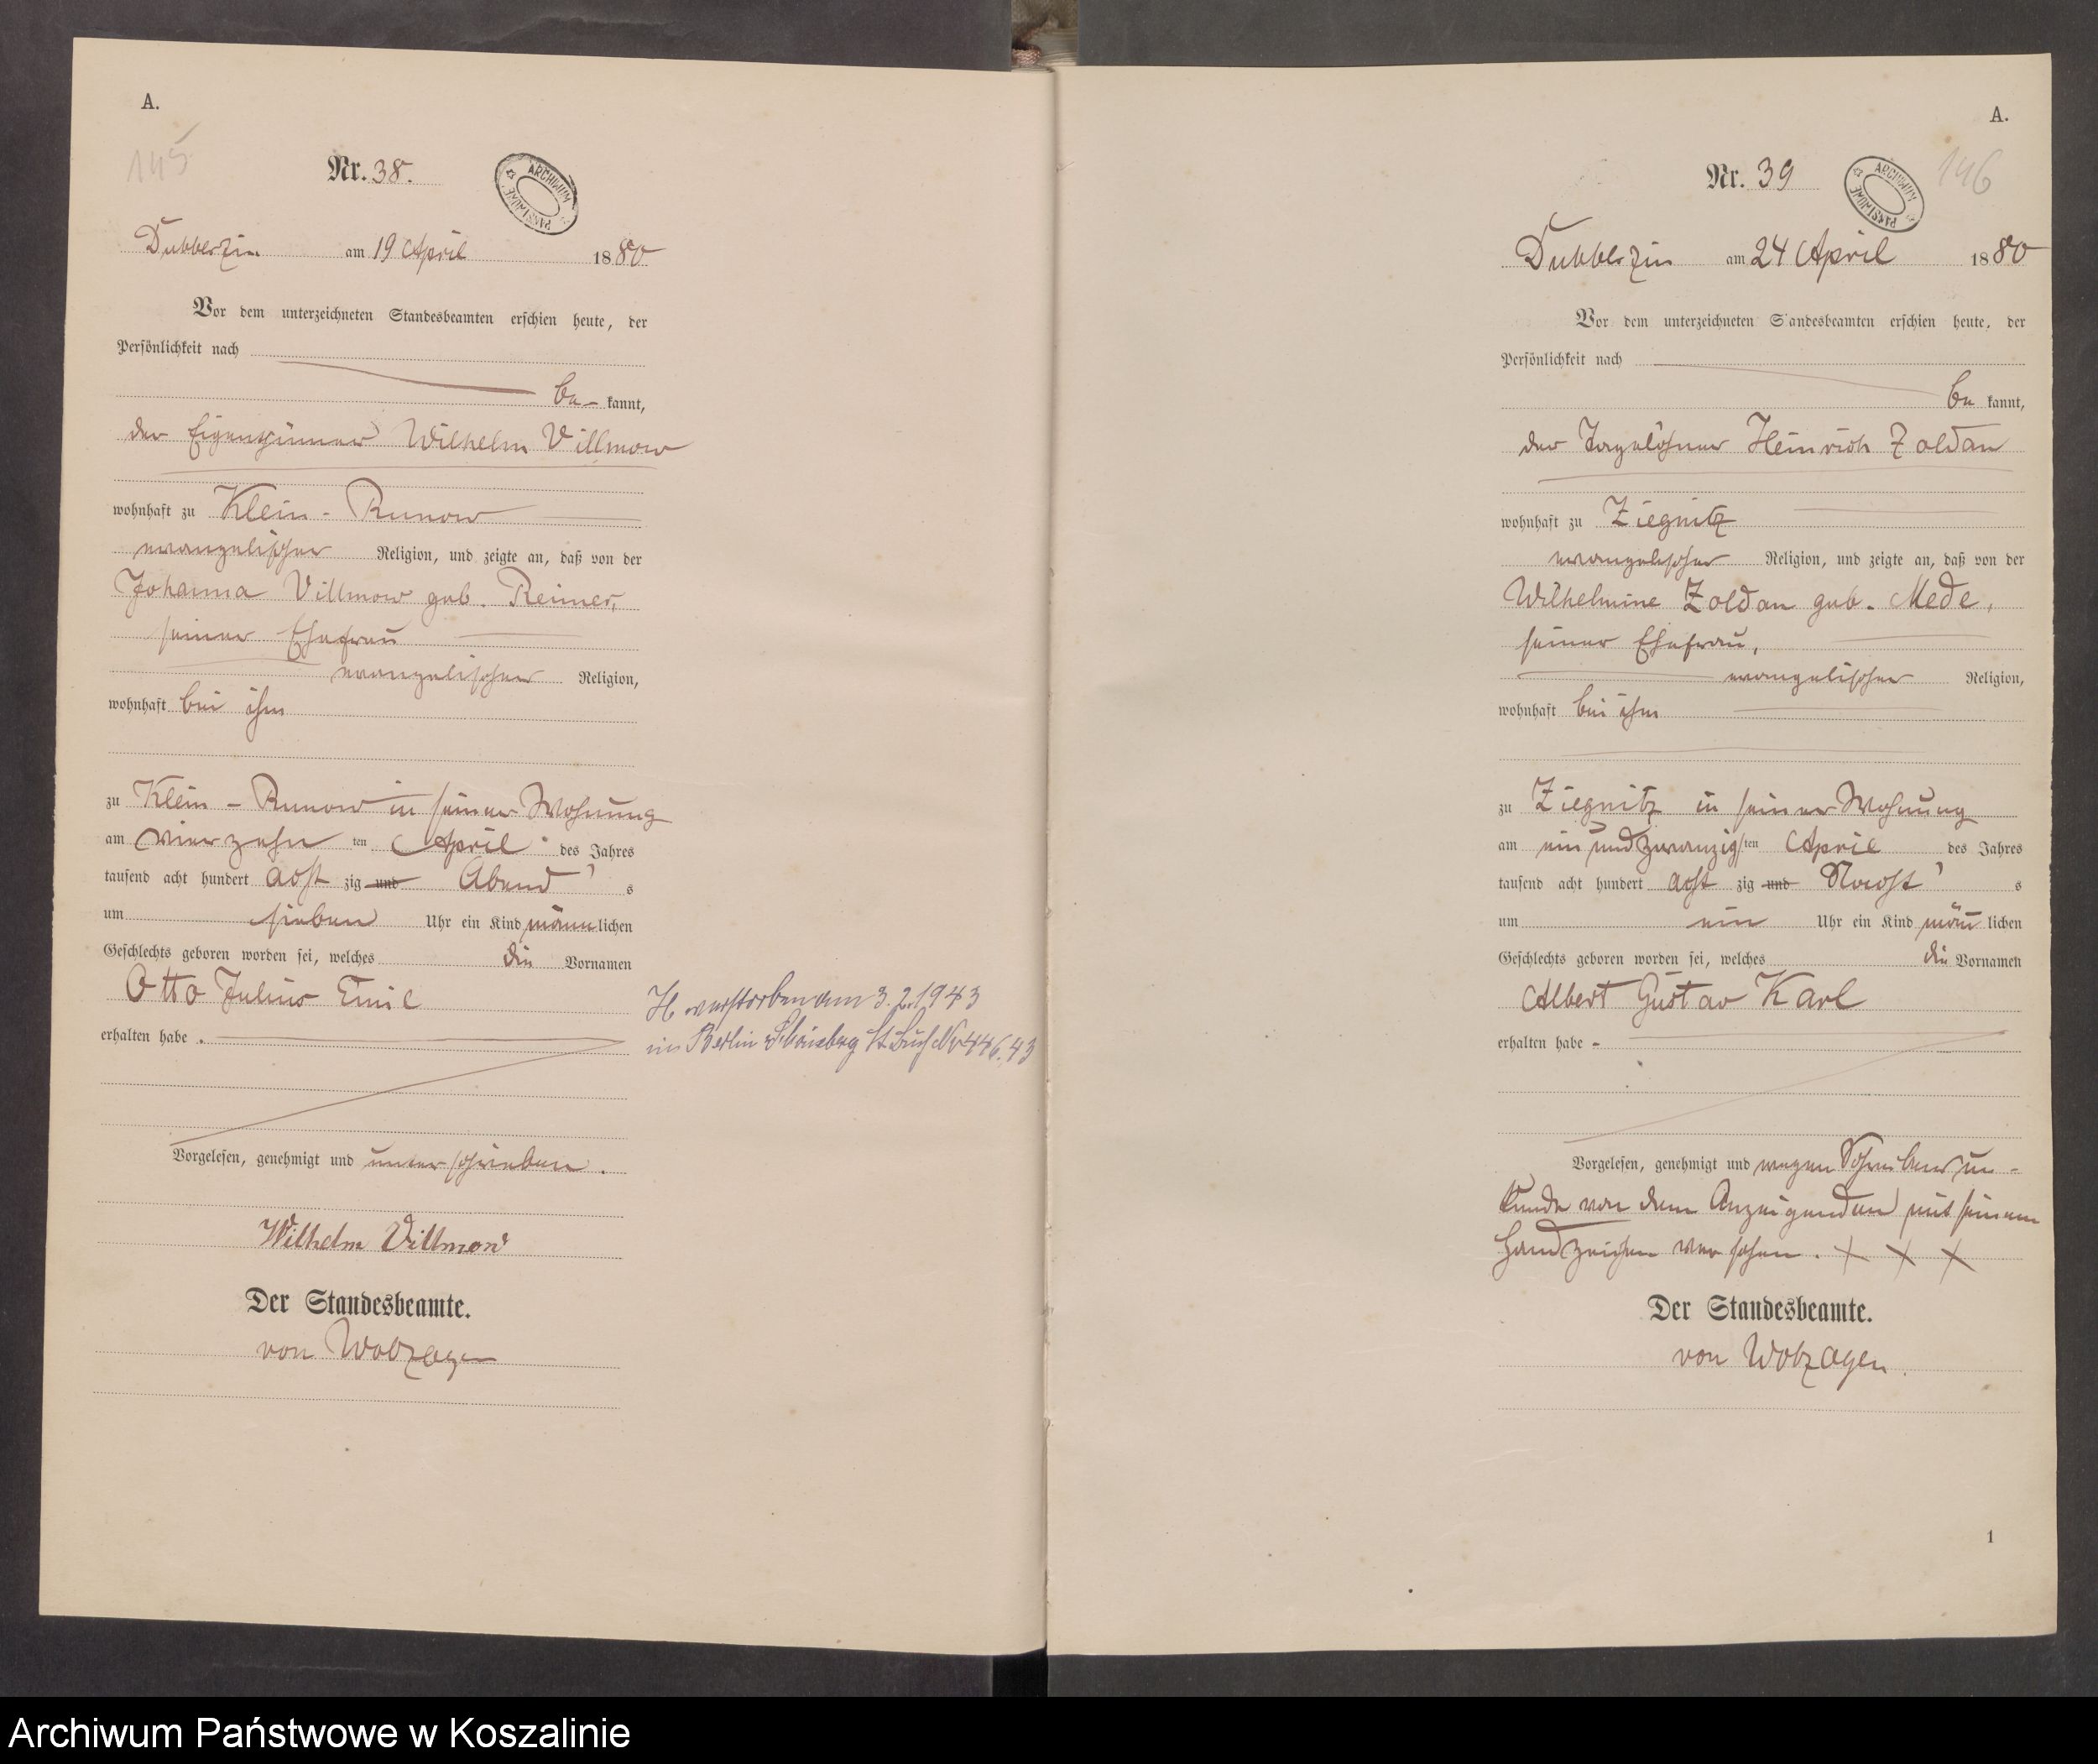 A.
145
Nr. 38.
ARCHIWUM PAŃSTWOWE
Dubberzin am 19 April 1880
Vor dem unterzeichneten Standesbeamten erschien heute, der
Persönlichkeit nach
be- kannt,
der Eigenthümer Wilhelm Villmow
wohnhaft zu Klein-Runow
evangelischer Religion, und zeigte an, daß von der
Johanna Villmow geb. Reimer,
seiner Ehefrau
evangelischer Religion,
wohnhaft bei ihm
zu Klein-Runow in seiner Wohnung
am vierzehn ten April des Jahres
tausend acht hundert acht zig und Abend s
um sieben Uhr ein Kind männlichen
Geschlechts geboren worden sei, welches die Vornamen
Otto Julius Emil
erhalten habe.
H. verstorben am 3.2.1943
in Berlin Schöneberg St. Buch Nr 446.43
Vorgelesen, genehmigt und unterschrieben.
Wilhelm Villmow
Der Standesbeamte.
von
A.
146
Nr. 39
ARCHIWUM PAŃSTWOWE
Dubberzin am 24 April 1880
Vor dem unterzeichneten Standesbeamten erschien heute, der
Persönlichkeit nach
be kannt,
der Tagelöhner Heinrich Zoldan
wohnhaft zu Ziegnitz
evangelischer Religion, und zeigte an, daß von der
Wilhelmine Zoldan geb. Mede,
seiner Ehefrau,
evangelischer Religion,
wohnhaft bei ihm
zu Ziegnitz in seiner Wohnung
am ein und zwanzigsten April des Jahres
tausend acht hundert acht zig und Nacht s
um ein Uhr ein Kind männlichen
Geschlechts geboren worden sei, welches die Vornamen
Albert Gustav Karl
erhalten habe -
Vorgelesen, genehmigt und wegen Schreibens un-
kunde von dem Anzeigenden mit seinem
Handzeichen versehen. + + +
Der Standesbeamte.
von
1
Archiwum Państwowe w Koszalinie